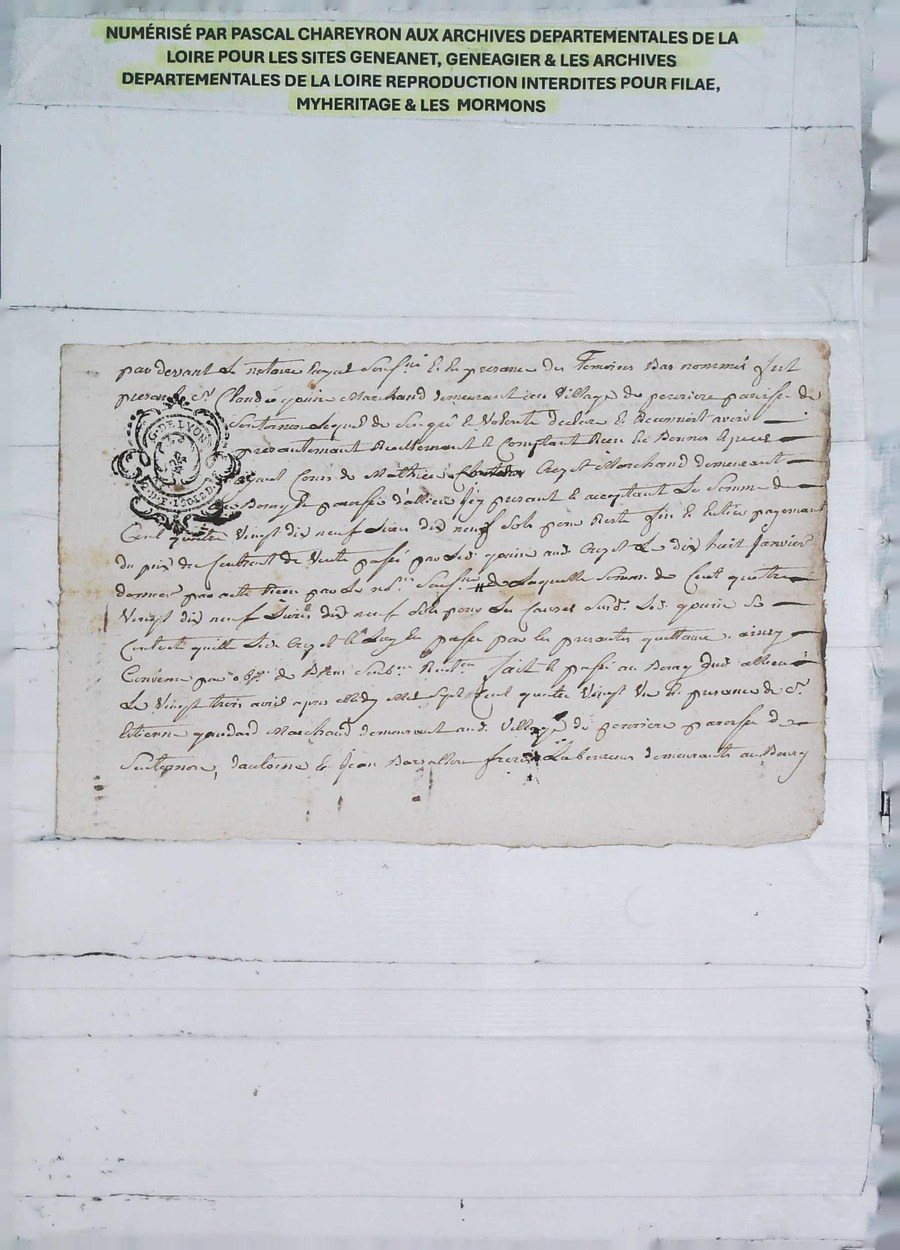 NUMÉRISÉ PAR PASCAL CHAREYRON AUX ARCHIVES DEPARTEMENTALES DE LA
LOIRE POUR LES SITES GENEANET, GENEAGIER & LES ARCHIVES
DEPARTEMENTALES DE LA LOIRE REPRODUCTION INTERDITES POUR FILAE,
MYHERITAGE & LES MORMONS
par devant Le notaire Royal Soussigné & En presance des Temoins Bas nommés fut
presant Sr Claude Marchand demeurant en Village de perriere paroisse de
G. DE LYON
lequel de Son gré & Volonté declare & Reconnoit avoir
presantement Reellement & Comptant Receu En Bonnes Especes
Cours de Mathieu Crozet Marchand demeurant
Bourg & paroisse d'allieu icy presant & acceptant La Somme de
Cent quatre Vingt dix neuf Livres dix neuf Sols pour Reste fin & Entier payement
du prix du Contrat de Vente passé par led. aud. Crozet Le dix huit Janvier
dernier par acte Receu par Le no.re de Laquelle Somme de Cent quatre
Vingt dix neuf Livres dix neuf Sols pour Les Causes Susd. Led. Se
Contente quitte Led. Crozet & Luy En passe par Les presantes quittance ainsy
Convenu par de Biens fait & passé au Bourg dud. allieu
Le Vingt trois avril apres Midy Mil Sept Cent quatre Vingt Un En presance de Sr.
Etienne gaudard Marchand demeurant aud. Village de perriere paroisse de
& Jean freres Laboureurs demeurants au Bourg